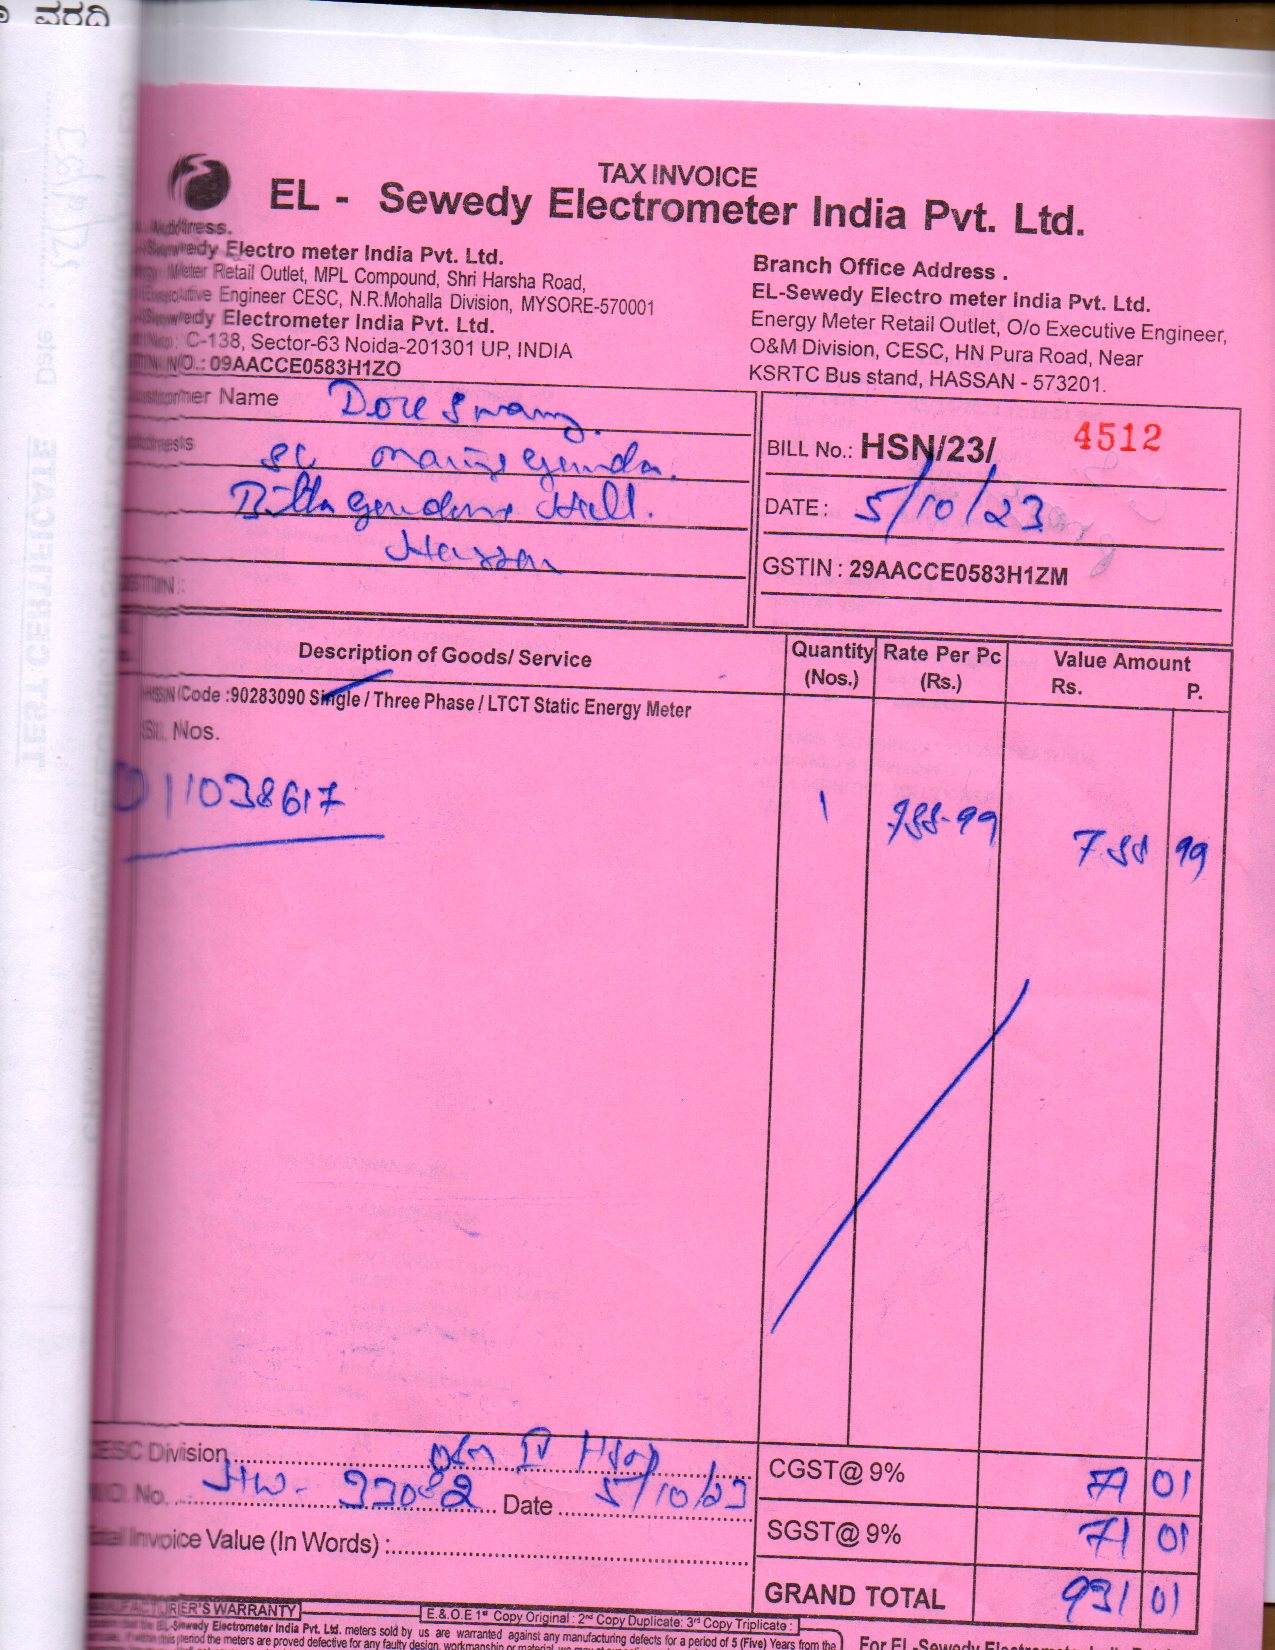 ವರದಿ
TAX INVOICE
EL - Sewedy Electrometer India Pvt. Ltd.
Address.
Sewedy Electro meter India Pvt. Ltd.
Meter Retail Outlet, MPL Compound, Shri Harsha Road,
Executive Engineer CESC, N.R.Mohalla Division, MYSORE-570001
Sewedy Electrometer India Pvt. Ltd.
C-138, Sector-63 Noida-201301 UP, INDIA
NO.: 09AACCE0583H1ZO
Branch Office Address .
EL-Sewedy Electro meter India Pvt. Ltd.
Energy Meter Retail Outlet, O/o Executive Engineer,
O&M Division, CESC, HN Pura Road, Near
KSRTC Bus stand, HASSAN - 573201.
Customer Name Dore Swamy.
Address
Hassan
BILL No.: HSN/23/ 4512
DATE : 5/10/23
GSTIN : 29AACCE0583H1ZM
Description of Goods/ Service Quantity (Nos.) Rate Per Pc (Rs.) Value Amount Rs. P.
HSN Code :90283090 Single / Three Phase / LTCT Static Energy Meter
SL. Nos.
11038617 1 788-99 788 99
CESC Division
No. Date 5/10/23
Invoice Value (In Words) :
CGST@ 9% 71 01
SGST@ 9% 71 01
GRAND TOTAL 931 01
MANUFACTURER'S WARRANTY
E.& O.E 1st Copy Original : 2nd Copy Duplicate: 3rd Copy Triplicate :
EL-Sewedy Electrometer India Pvt. Ltd. meters sold by us are warranted against any manufacturing defects for a period of 5 (Five) Years from the
period the meters are proved defective for any faulty design, workmanship or material,
For EL-Sewedy Electrometer India
TEST CERTIFICATE
Date :